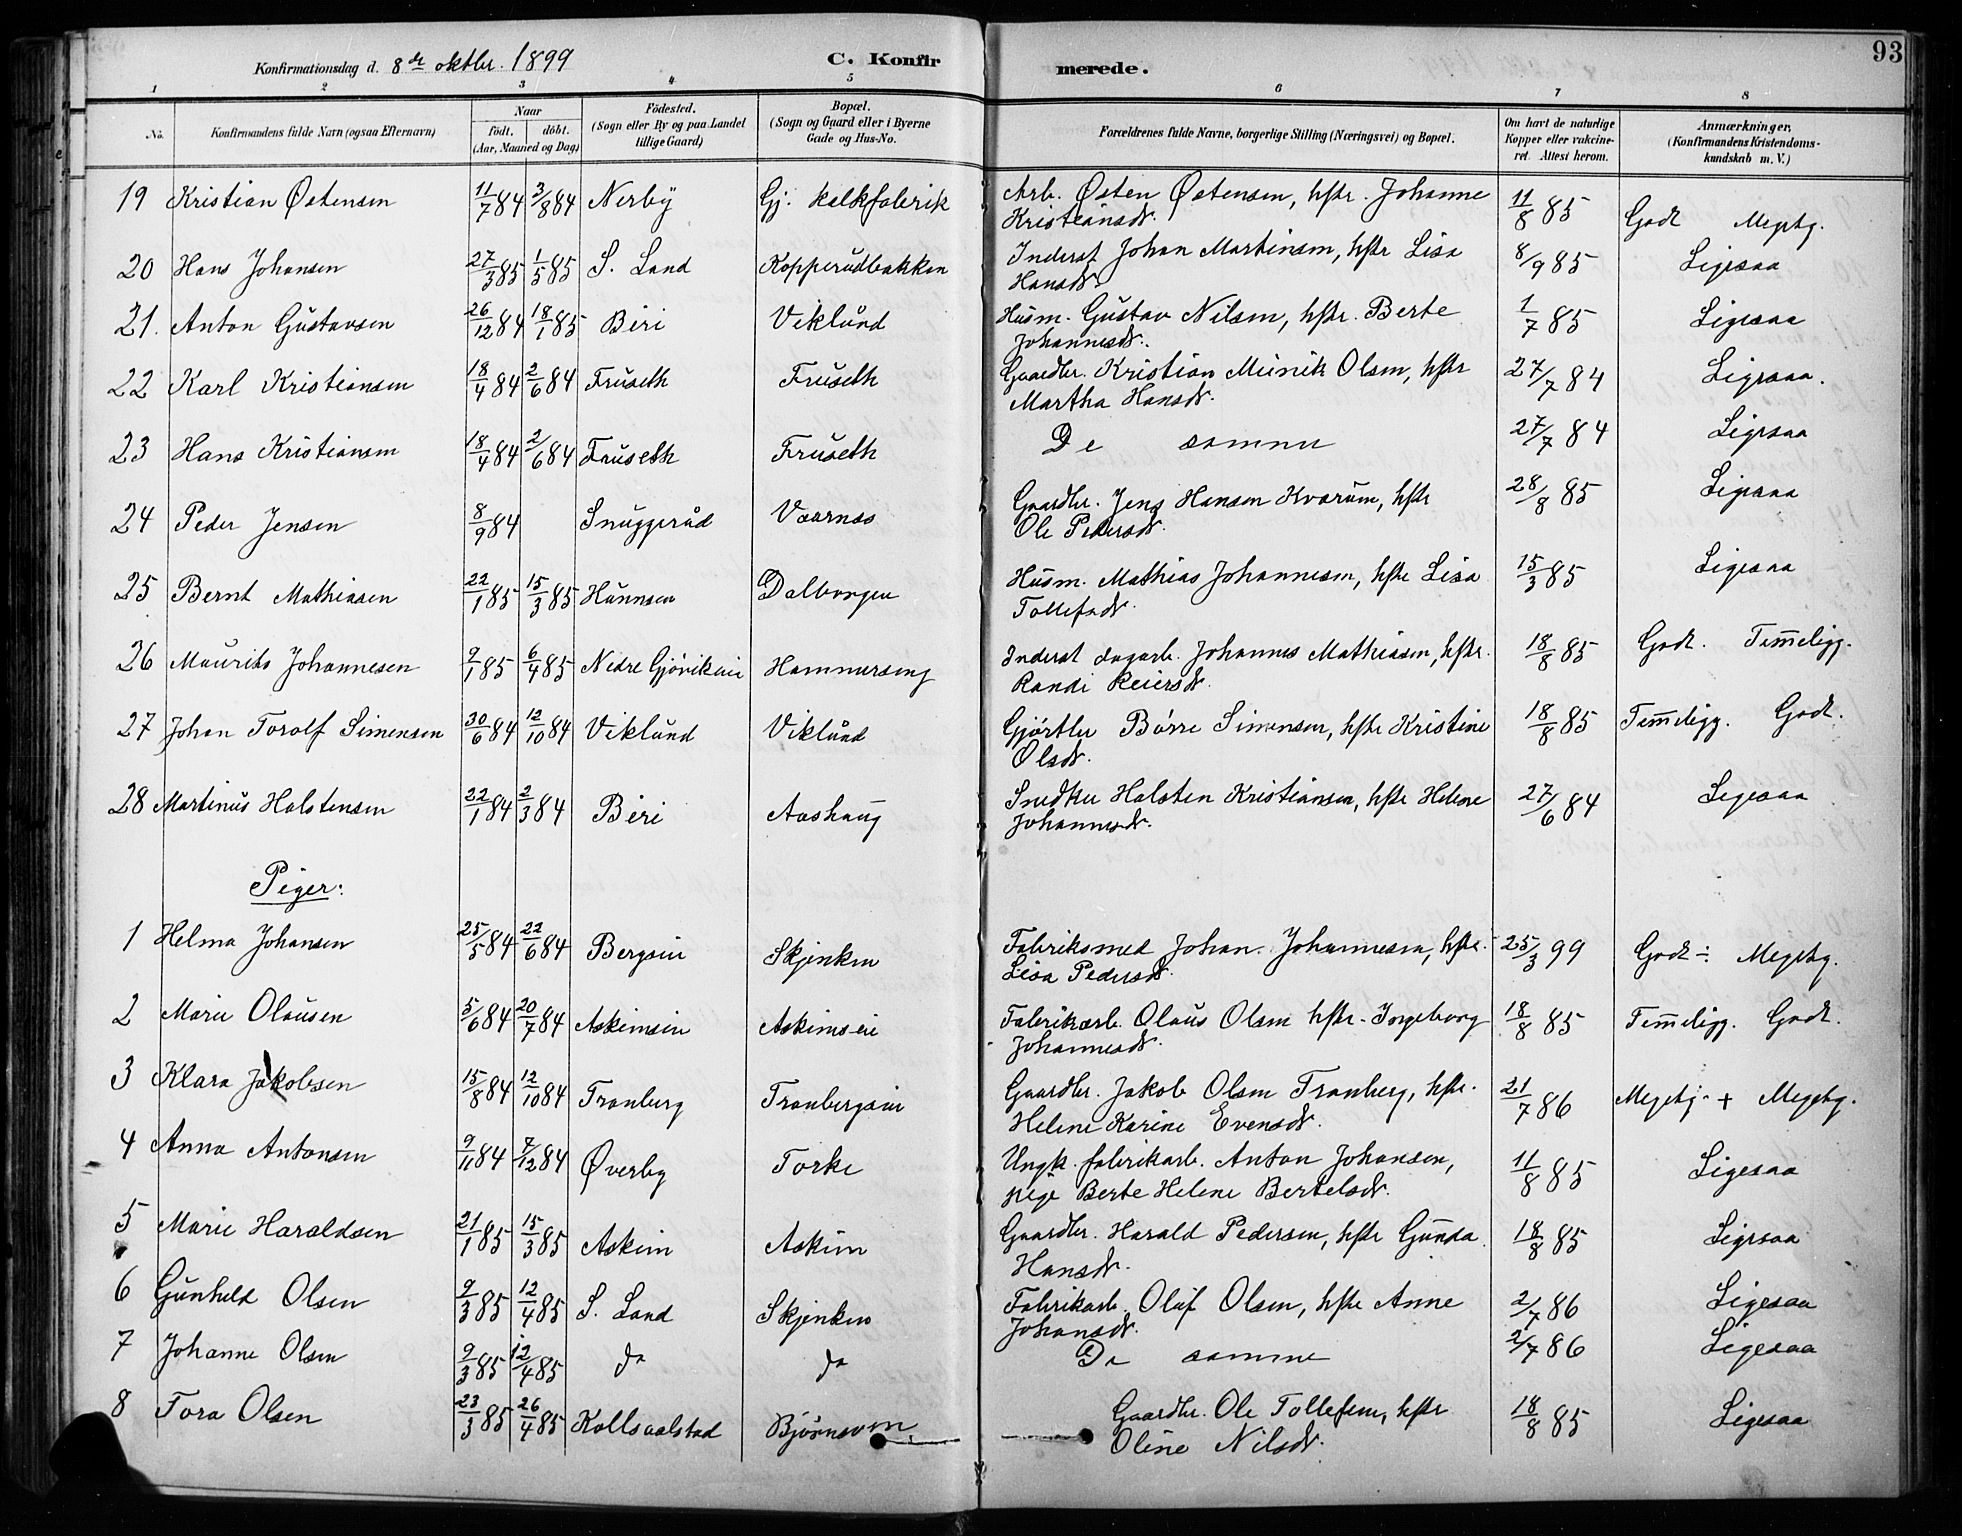 93
Konfirmationsdag d. 8de oktbr. 1899 C. Konfirmerede.
1 2 3 4 5 6 7 8
No. Konfirmandens fulde Navn (ogsaa Efternavn) Naar födt. döbt. (Aar, Maaned og Dag) Födested. (Sogn eller By og paa Landet tillige Gaard) Bopæl. (Sogn og Gaard eller i Byerne Gade og Hus-No. Forældrenes fulde Navne, borgerlige Stilling (Næringsvei) og Bopæl. Om havt de naturlige Kopper eller vakcineret. Attest herom. Anmærkninger. (Konfirmandens Kristendomskundskab m. V.)
19 Kristian Østensen 11/7 84 3/8 84 Nerby Gj. kalkfabrik Arb. Østen Østensen, hstr. Johanne Kristiansdr. 11/8 85 Godt Megetg.
20 Hans Johansen 27/3 85 1/5 85 S. Land Kopperudbakken Inderst Johan Martinsen, hstr Lisa Hansdr. 8/9 85 Ligesaa
21. Anton Gustavsen 26/12 84 18/1 85 Biri Viklund Husm. Gustav Nilsen, hstr. Berte Johannesdr. 1/7 85 Ligesaa
22 Karl Kristiansen 18/4 84 2/6 84 Fruseth Fruseth Gaardbr. Kristian Minik Olsen, hstr Martha Hansdr. 27/7 84 Ligesaa.
23 Hans Kristiansen 18/4 84 2/6 84 Fruseth Fruseth De samme 27/7 84 Ligesaa
24 Peder Jensen 8/9 84 Snuggerud Vaarnes Gaardbr. Jens Hansen Kvarum, hstr Ole Pedersdr. 28/8 85 Ligesaa
25 Bernt Mathiasen 22/1 85 15/3 85 Hunnsen Dalborgen Husm. Mathias Johannesen, hstr Lisa Tollefsdr. 15/3 85 Ligesaa
26 Maurits Johannesen 9/1 85 6/4 85 Nedre Gjøvikeie Hammerseng Inderst dagarb. Johannes Mathiasen, hstr. Randi Reiersdr. 18/8 85 Godt. Temmeligg.
27 Johan Torolf Simensen 30/6 84 12/10 84 Viklund Viklund Gjørtler Børre Simensen, hstr Kristine Olsdr. 18/8 85 Temmeligg. Godt.
28 Martinus Halstensen 22/1 84 2/3 84 Biri Aashaug Snedker Halsten Kristiansen, hstr Helene Johannesdr. 27/6 84 Ligesaa
Piger:
1 Helma Johansen 25/5 84 22/6 84 Bergseie Skjenken Fabriksmed Johan Johannesen, hstr. Lisa Pedersdr. 25/3 99 Godt ÷ Megetg.
2 Marie Olausen 5/6 84 20/7 84 Askimseie Askimseie Fabrikarb. Olaus Olsen hstr. Ingeborg Johannesdr. 18/8 85 Temmeligg. Godt.
3 Klara Jakobsen 15/8 84 12/10 84 Tranberg Tranbergseie Gaardbr. Jakob Olsen Tranberg, hstr. Helene Karine Evensdr. 21/7 86 Megetg. + Megetg.
4 Anna Antonsen 9/11 84 7/12 84 Øverby Torke Ungk. fabrikarb. Anton Johansen, pige Berte Helene Bertelsdr. 11/8 85 Ligesaa
5 Marie Haraldsen 21/1 85 15/3 85 Askim Askim Gaardbr. Harald Pedersen, hstr Gunda Hansdr. 18/8 85 Ligesaa
6 Gunhild Olsen 9/3 85 12/4 85 S. Land Skjenken Fabrikarb. Oluf Olsen, hstr Anne Johansdr. 2/7 86 Ligesaa
7 Johanne Olsen 9/3 85 12/4 85 do do De samme 2/7 86 Ligesaa
8 Tora Olsen 23/3 85 26/4 85 Kollsaalstad Bjørnsven Gaardbr. Ole Tollefsen, hstr Oline Nilsdr. 18/8 85 Ligesaa